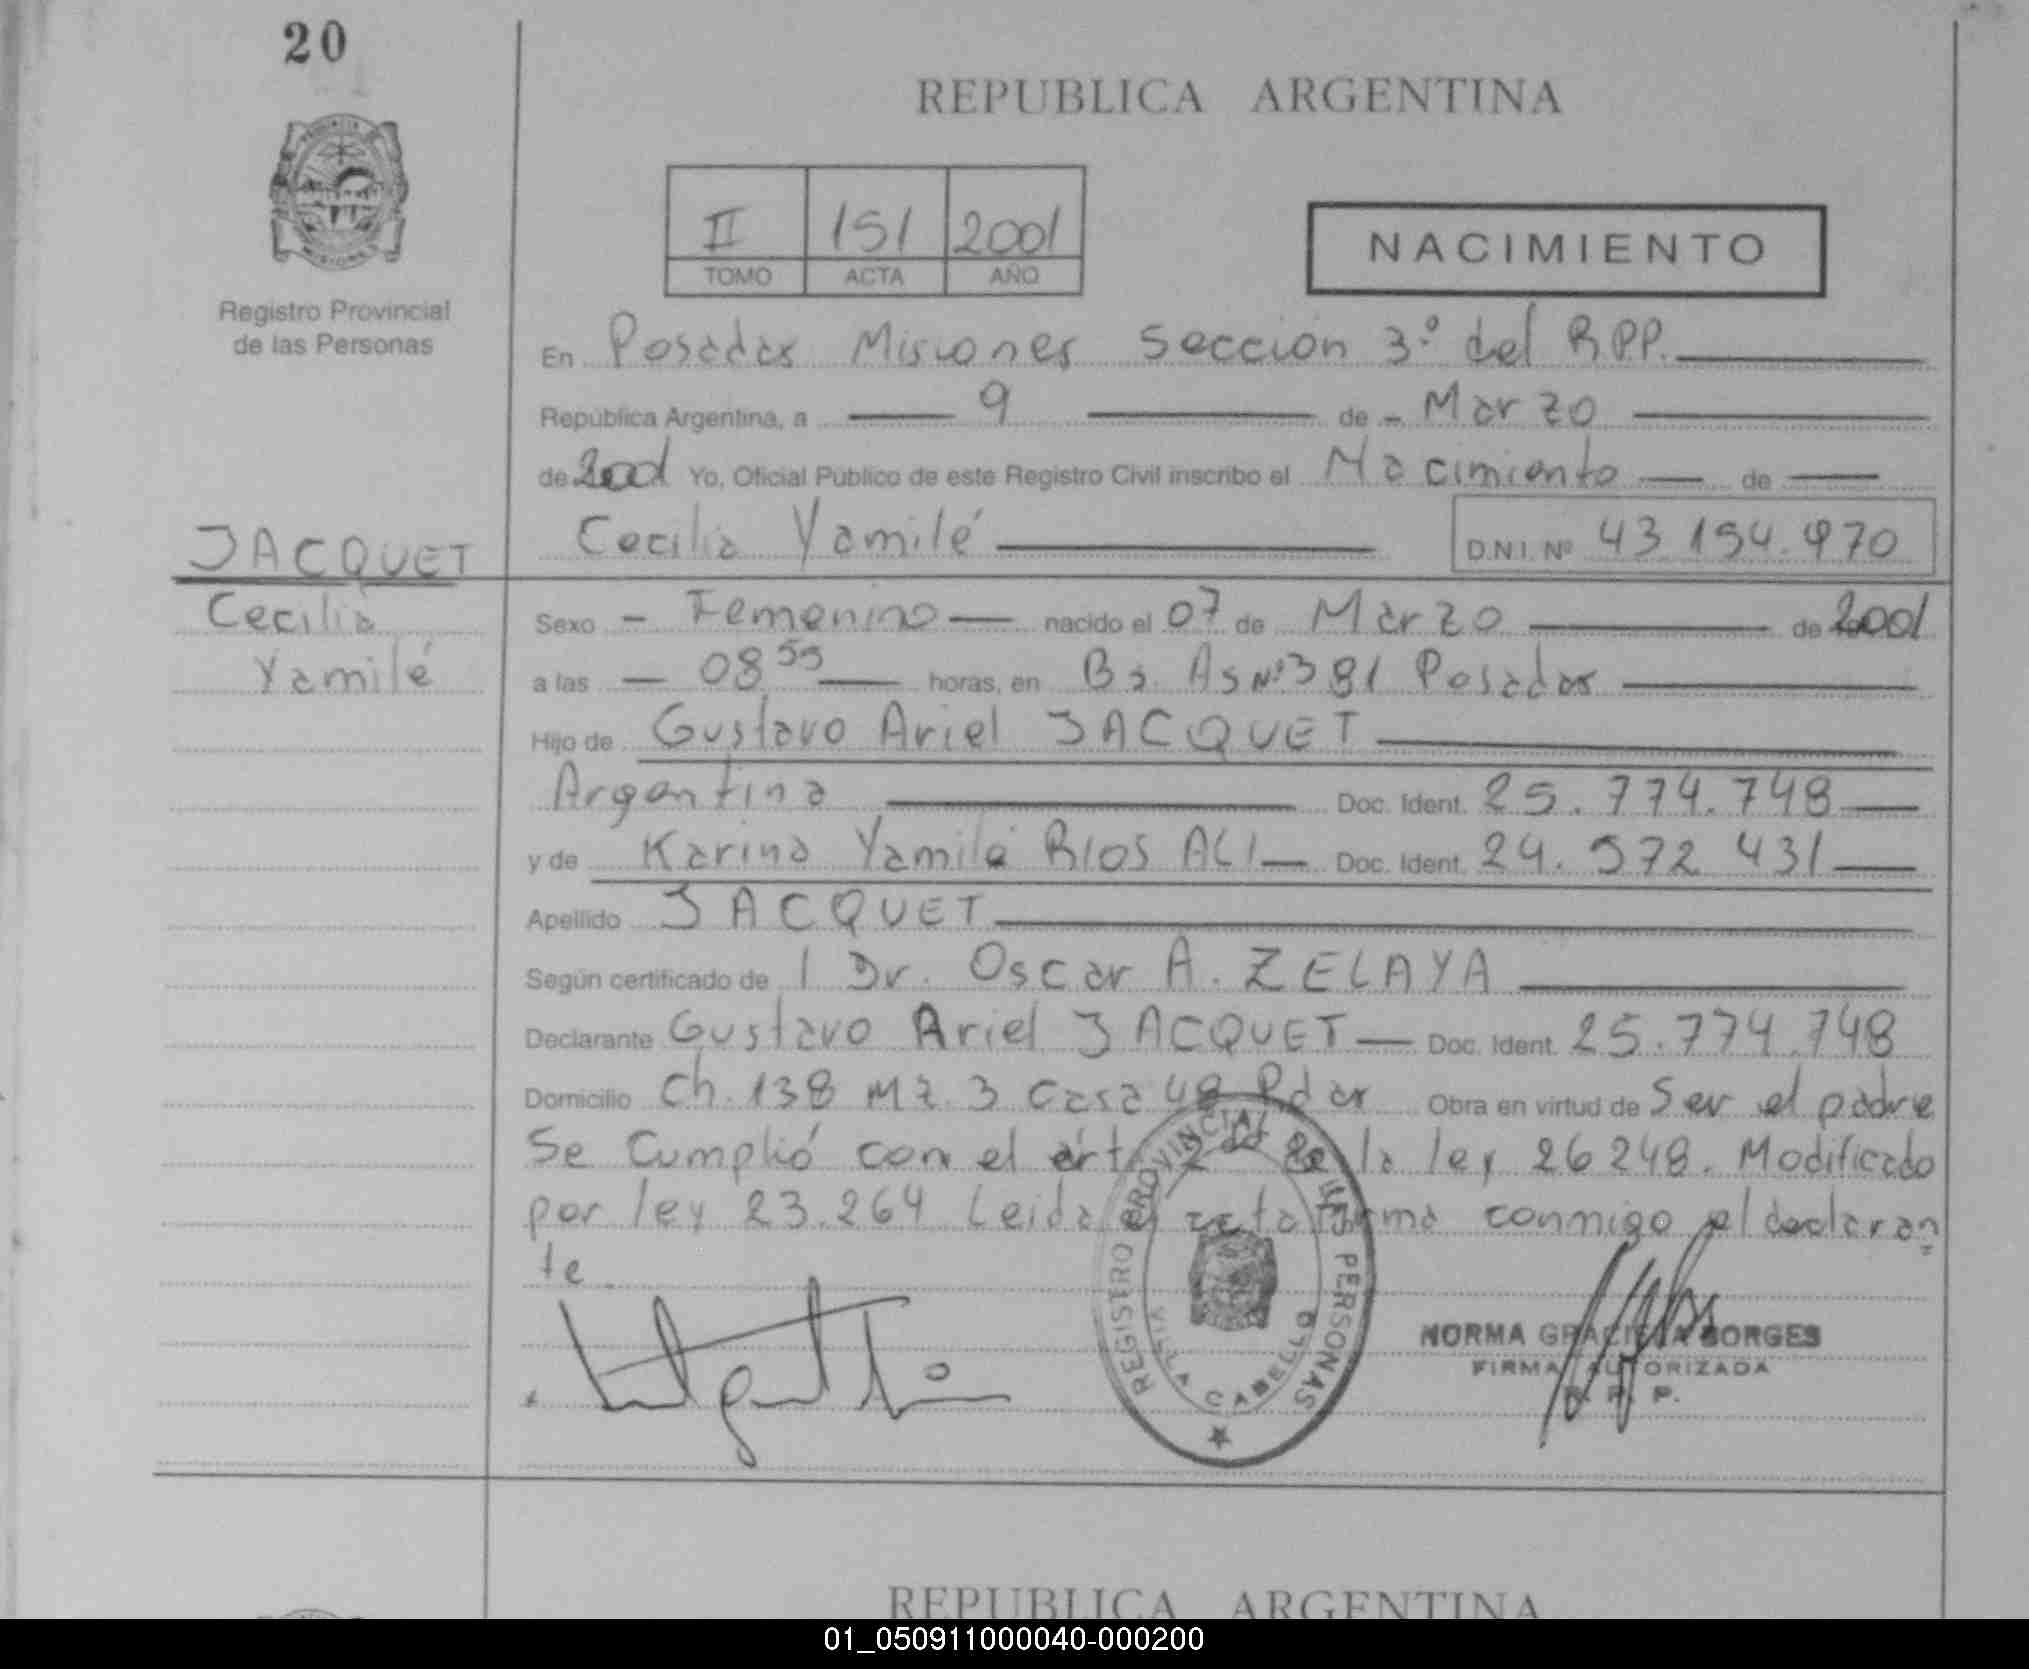 20
REPUBLICA ARGENTINA
II 151 2001
TOMO ACTA AÑO
NACIMIENTO
Registro Provincial
de las Personas
En Posadas Misiones Sección 3º del R.P.P.
República Argentina, a 9 de Marzo
de 2001 Yo, Oficial Público de este Registro Civil inscribo el Nacimiento de
Cecilia Yamilé D.N.I. Nº 43 154.970
JACQUET
Cecilia
Yamilé
Sexo - Femenino nacido el 07 de Marzo de 2001
a las 08 55 horas, en Bs. As Nº 381 Posadas
Hijo de Gustavo Ariel JACQUET
Argentina Doc. Ident. 25.774.748
y de Karina Yamile RIOS ALI Doc. Ident. 24.572 431
Apellido JACQUET
Según certificado de l Dr. Oscar A. ZELAYA
Declarante Gustavo Ariel JACQUET Doc. Ident. 25.774.748
Domicilio Ch. 138 Mz. 3 Casa 48 Pdas Obra en virtud de Ser el padre
Se Cumplió con el art de la ley 26248. Modificado
por ley 23.264 Leida el acta firma conmigo el declaran
te.
REGISTRO PROVINCIAL DE LAS PERSONAS
VILLA CABELLO
NORMA GRACIELA BORGES
FIRMA AUTORIZADA
R. P. P.
REPUBLICA ARGENTINA
01_050911000040-000200